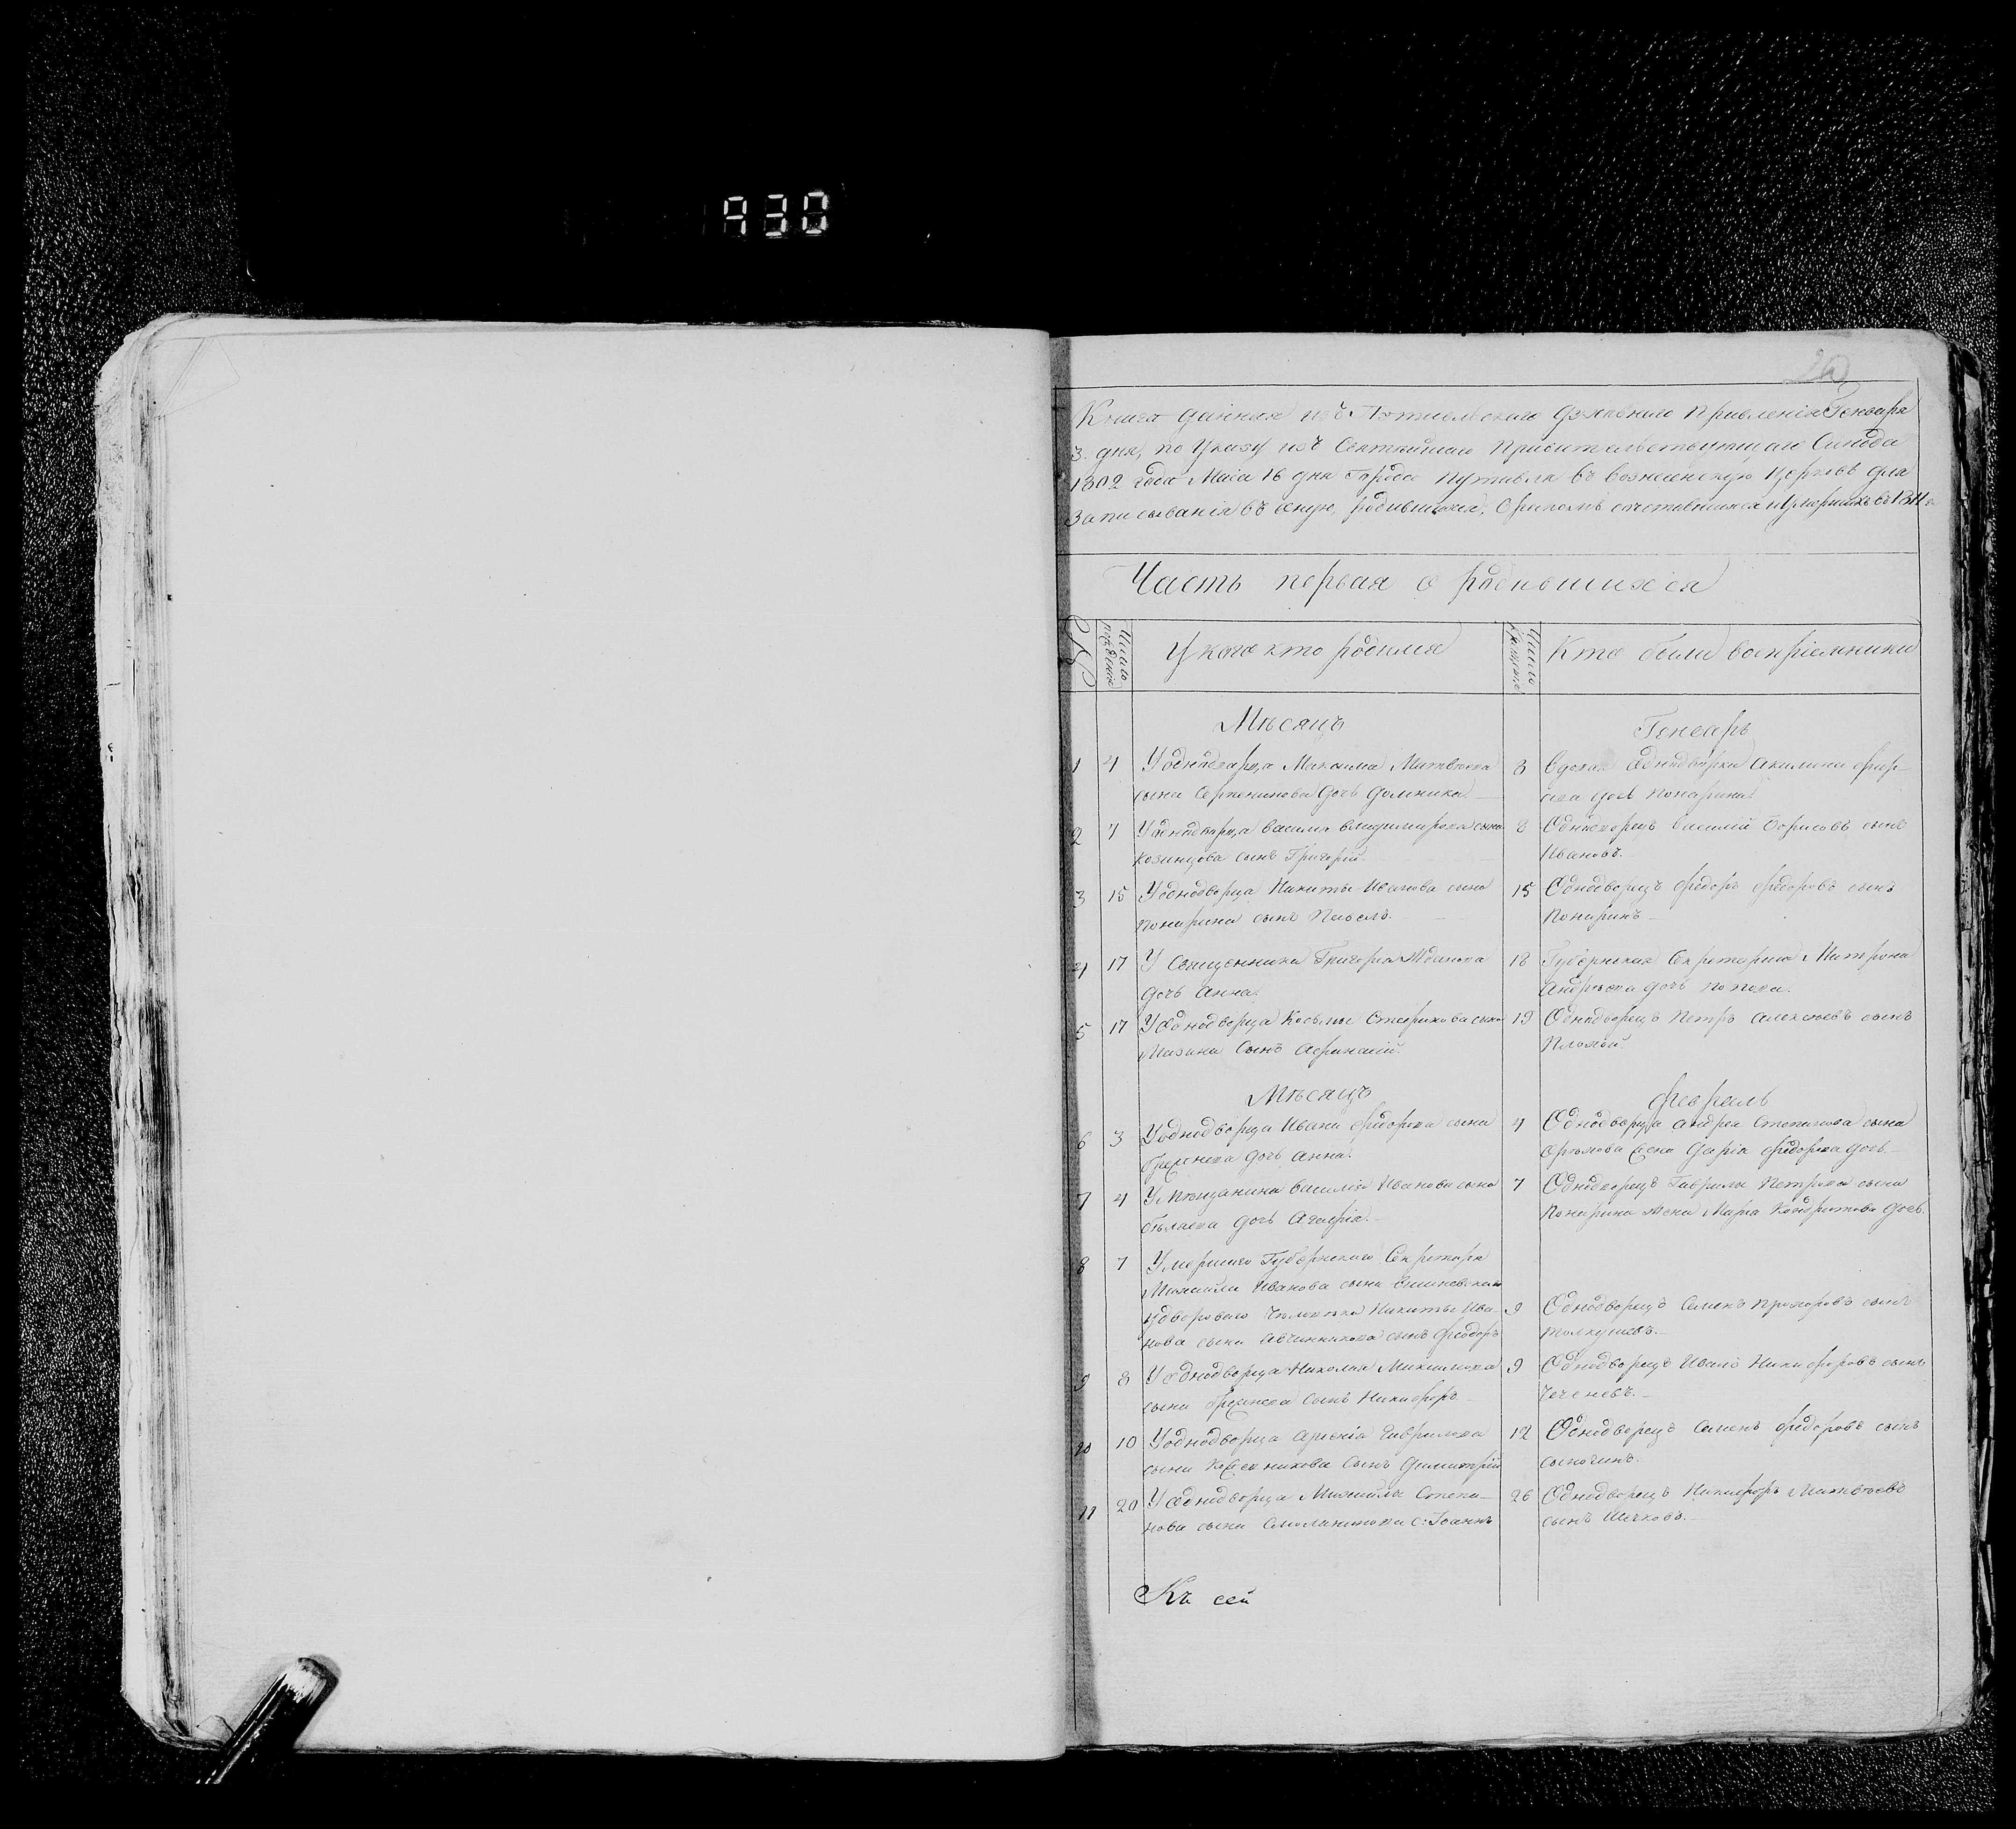 930
20
Книга данная изъ Путивльскаго Духовнаго Правленія Генваря
3. дня, по Указу изъ Святейшаго Правительствующаго Синода
1802 года Маіа 16 дня города Путивля въ Вознесенскую Церковь для
Записыванія въ оную, родившихся, бракомъ сочетавшихся и умершихъ въ 1811
Часть первая о родившихся
Число рожденія
У кого кто родился
Число крещенія
Кто были воспріемники
Мѣсяцъ
Генварь
1 4 У однодворца Максима Матвѣева
сына дочь Домника.
8 Вдова однодворка Акилина
дочь Понарина.
2 7 У однодворца Василія Владимирова сына
Козинцова сынъ Григорій.
8 Однодворецъ Василій Борисовъ сынъ
Ивановъ.
3 15 У однодворца Никиты Иванова сына
Понарина сынъ Павелъ.
15 Однодворецъ Федоръ Федоровъ сынъ
Понаринъ
4 17 У Священника Григорія Жданова
дочь Анна.
18 Губернская Секретарша Матрона
Андреева дочь Попова.
5 17 У Однодворца Косьмы сына
Мазина Сынъ Афанасій.
19 Однодворецъ Петръ Алексѣевъ сынъ
Плохой.
Мѣсяцъ
Февраль
6 3 У однодворца Ивана Федорова сына
дочь Анна.
4 Однодворца Андрея Степанова сына
жена Дарія Федорова дочь.
7 4 У мѣщанина Василія Иванова сына
Бѣляева дочь Агафія.
7 Однодворецъ Гаврилы Петрова сына
Понарина жена Марѳа Кондратова дочь.
8 7 Умершаго Губернскаго Секретаря
Михайла Иванова сына
удвороваго человѣка Никиты Ива
нова сына Овчинникова сынъ Феодоръ
9 Однодворецъ Семенъ Прохоровъ сынъ
Толкушевъ.
9 8 У Однодворца Николая Максимова
сына сынъ Никифоръ
9 Однодворецъ Иванъ Никифоровъ сынъ
Чеченевъ.
10 10 У однодворца Арсенія Гаврилова
сына Сынъ Димитрій
12 Однодворецъ Семенъ Федоровъ сынъ
11 20 У однодворца Михайлы Степа-
нова сына с: Іоаннъ
26 Однодворецъ Никифоръ Матвѣевъ
сынъ Шечковъ.
Къ сей